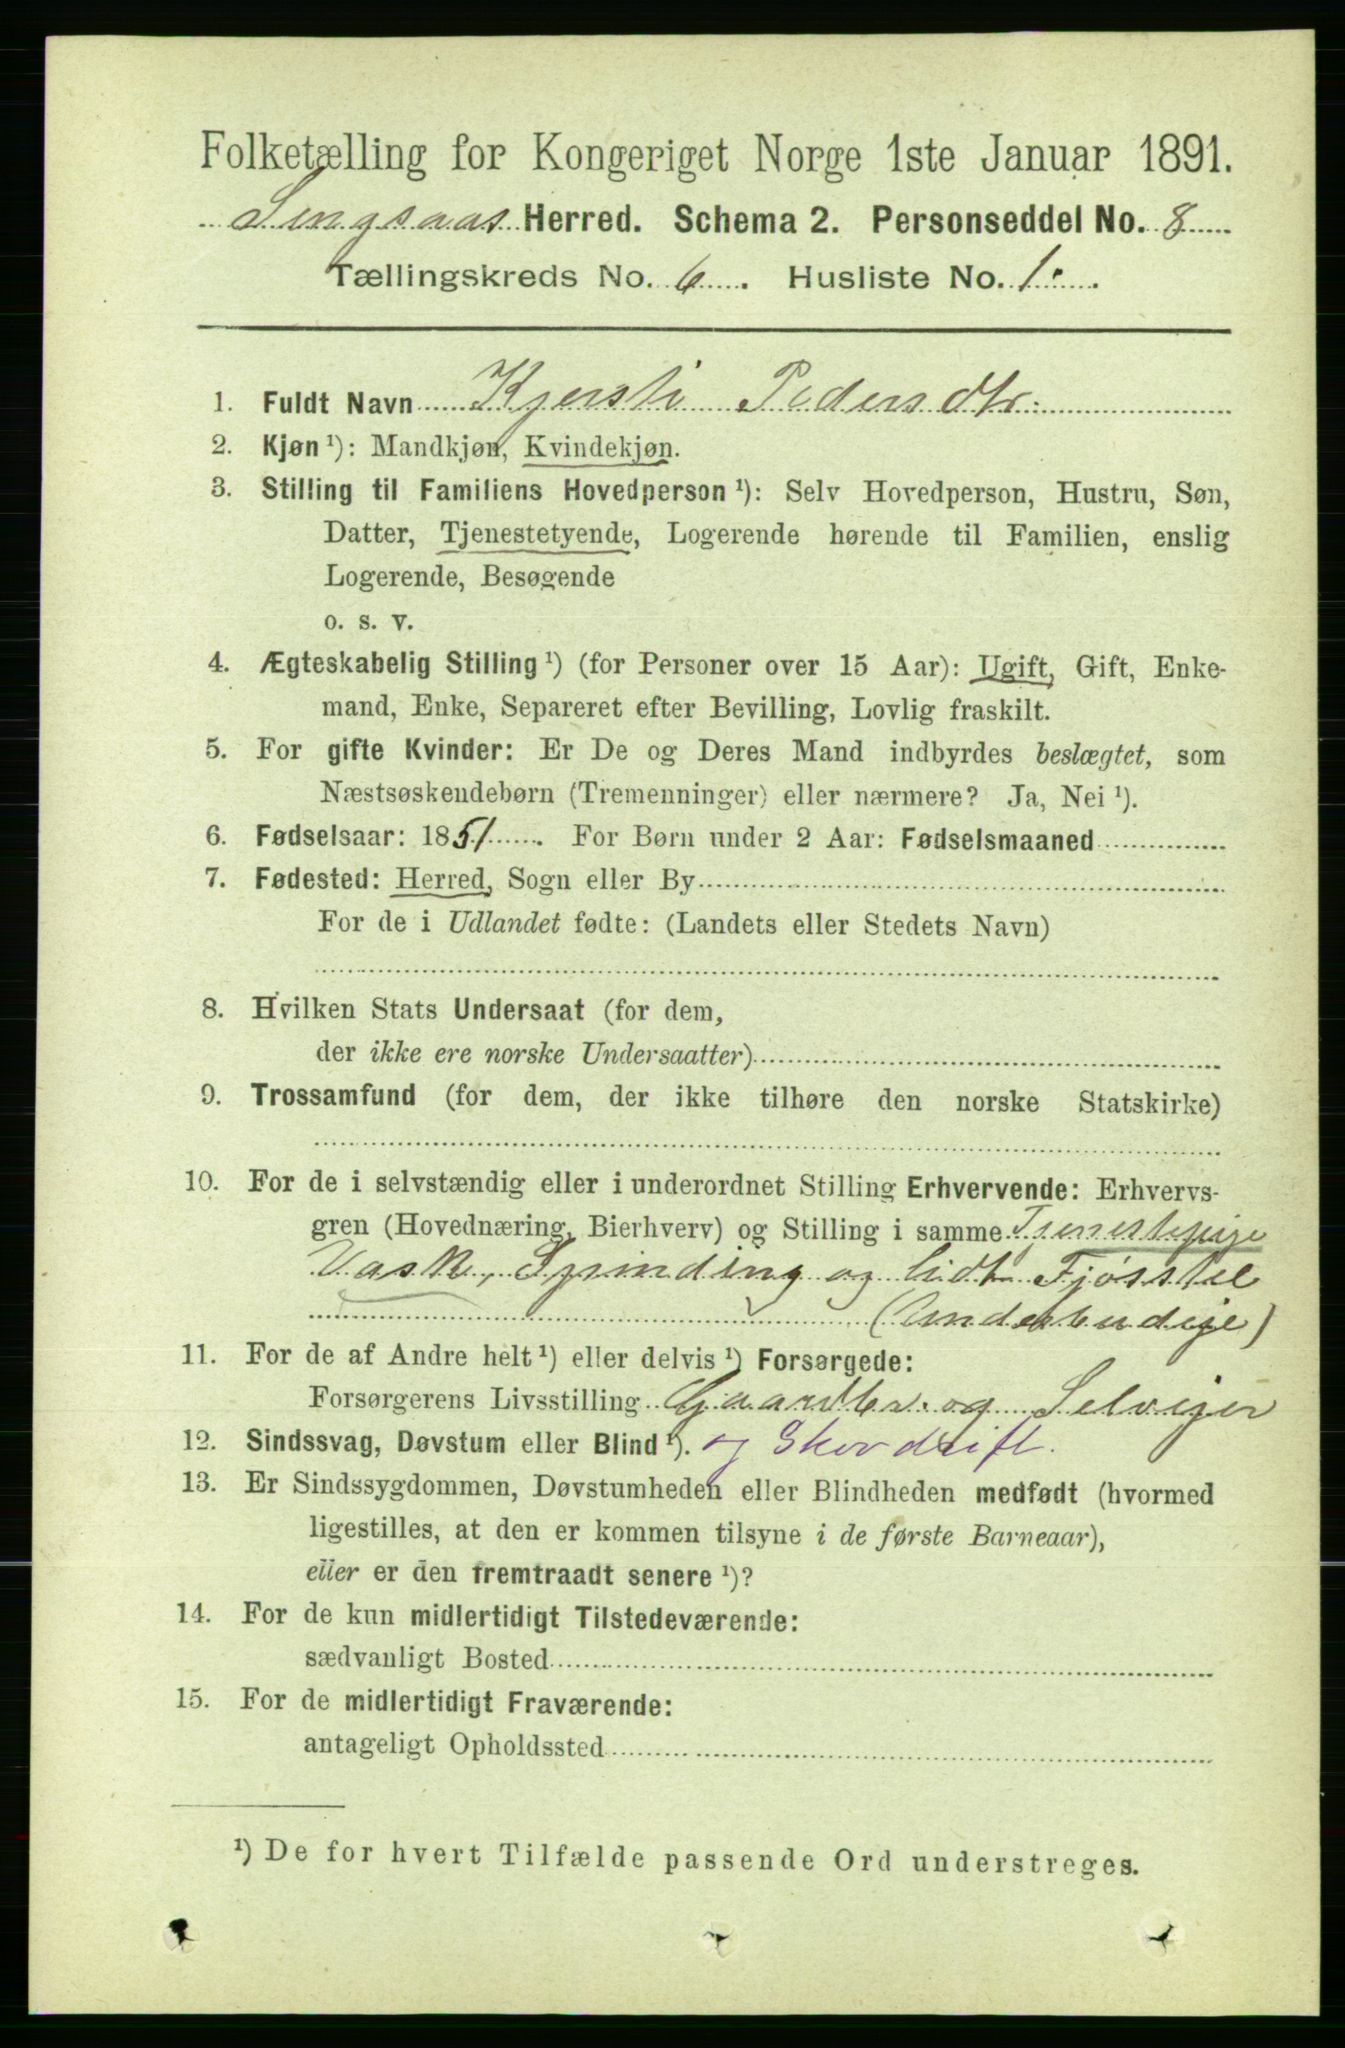 Folketælling for Kongeriget Norge 1ste Januar 1891.
Singsaas Herred. Schema 2. Personseddel No. 8
Tællingskreds No. 6. Husliste No. 1.
1. Fuldt Navn Kjersti Pedersdtr.
2. Kjøn ¹): Mandkjøn, Kvindekjøn.
3. Stilling til Familiens Hovedperson ¹): Selv Hovedperson, Hustru, Søn,
Datter, Tjenestetyende, Logerende hørende til Familien, enslig
Logerende, Besøgende
o. s. v.
4. Ægteskabelig Stilling ¹) (for Personer over 15 Aar): Ugift, Gift, Enke-
mand, Enke, Separeret efter Bevilling, Lovlig fraskilt.
5. For gifte Kvinder: Er De og Deres Mand indbyrdes beslægtet, som
Næstsøskendebørn (Tremenninger) eller nærmere? Ja, Nei ¹).
6. Fødselsaar: 1851. For Børn under 2 Aar: Fødselsmaaned
7. Fødested: Herred, Sogn eller By
For de i Udlandet fødte: (Landets eller Stedets Navn)
8. Hvilken Stats Undersaat (for dem,
der ikke ere norske Undersaatter)
9. Trossamfund (for dem, der ikke tilhøre den norske Statskirke)
10. For de i selvstændig eller i underordnet Stilling Erhvervende: Erhvervs-
gren (Hovednæring, Bierhverv) og Stilling i samme Tjenestepige
Vask, Spinding og lidt Fjøsstel
(Underbudeje)
11. For de af Andre helt ¹) eller delvis ¹) Forsørgede:
Forsørgerens Livsstilling Gaardbr. og Selveier
12. Sindssvag, Døvstum eller Blind ¹). og Skovdrift.
13. Er Sindssygdommen, Døvstumheden eller Blindheden medfødt (hvormed
ligestilles, at den er kommen tilsyne i de første Barneaar),
eller er den fremtraadt senere ¹)?
14. For de kun midlertidigt Tilstedeværende:
sædvanligt Bosted
15. For de midlertidigt Fraværende:
antageligt Opholdssted
¹) De for hvert Tilfælde passende Ord understreges.